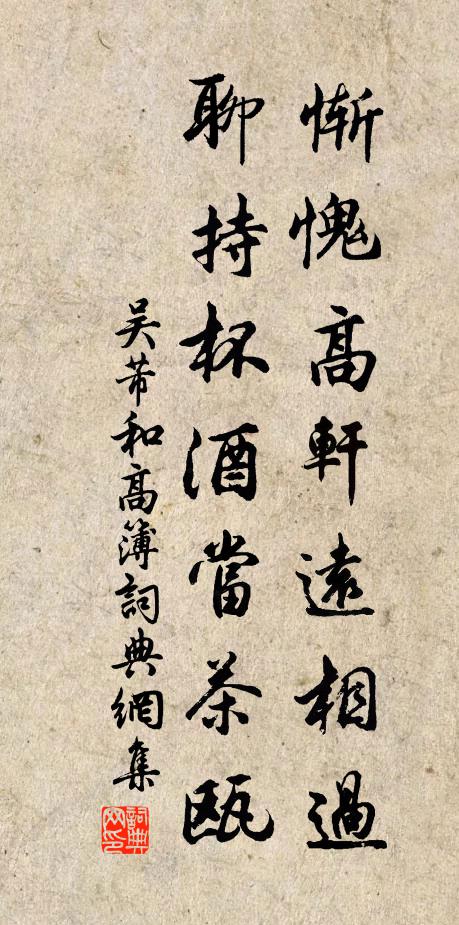 慚愧高軒遠相過
聊持杯酒當茶甌
吴芾和高簿詞典網集
詞典網印